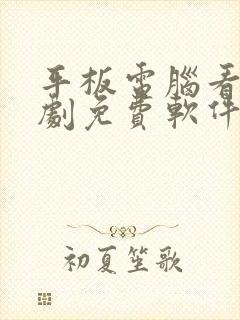 平板電腦看
劇免費軟件
初夏笙歌